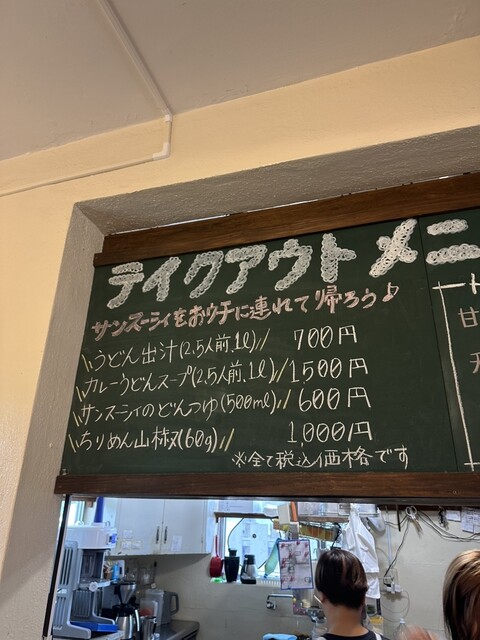 テイクアウトメニ
サンスーシィをおウチに連れて帰ろう♪
うどん出汁(2.5人前、1ℓ) 700円
カレーうどんスープ(2.5人前、1ℓ) 1,500円
サンスーシィのどんつゆ(500ml) 600円
ちりめん山椒(60g) 1,000円
※全て税込価格です
甘